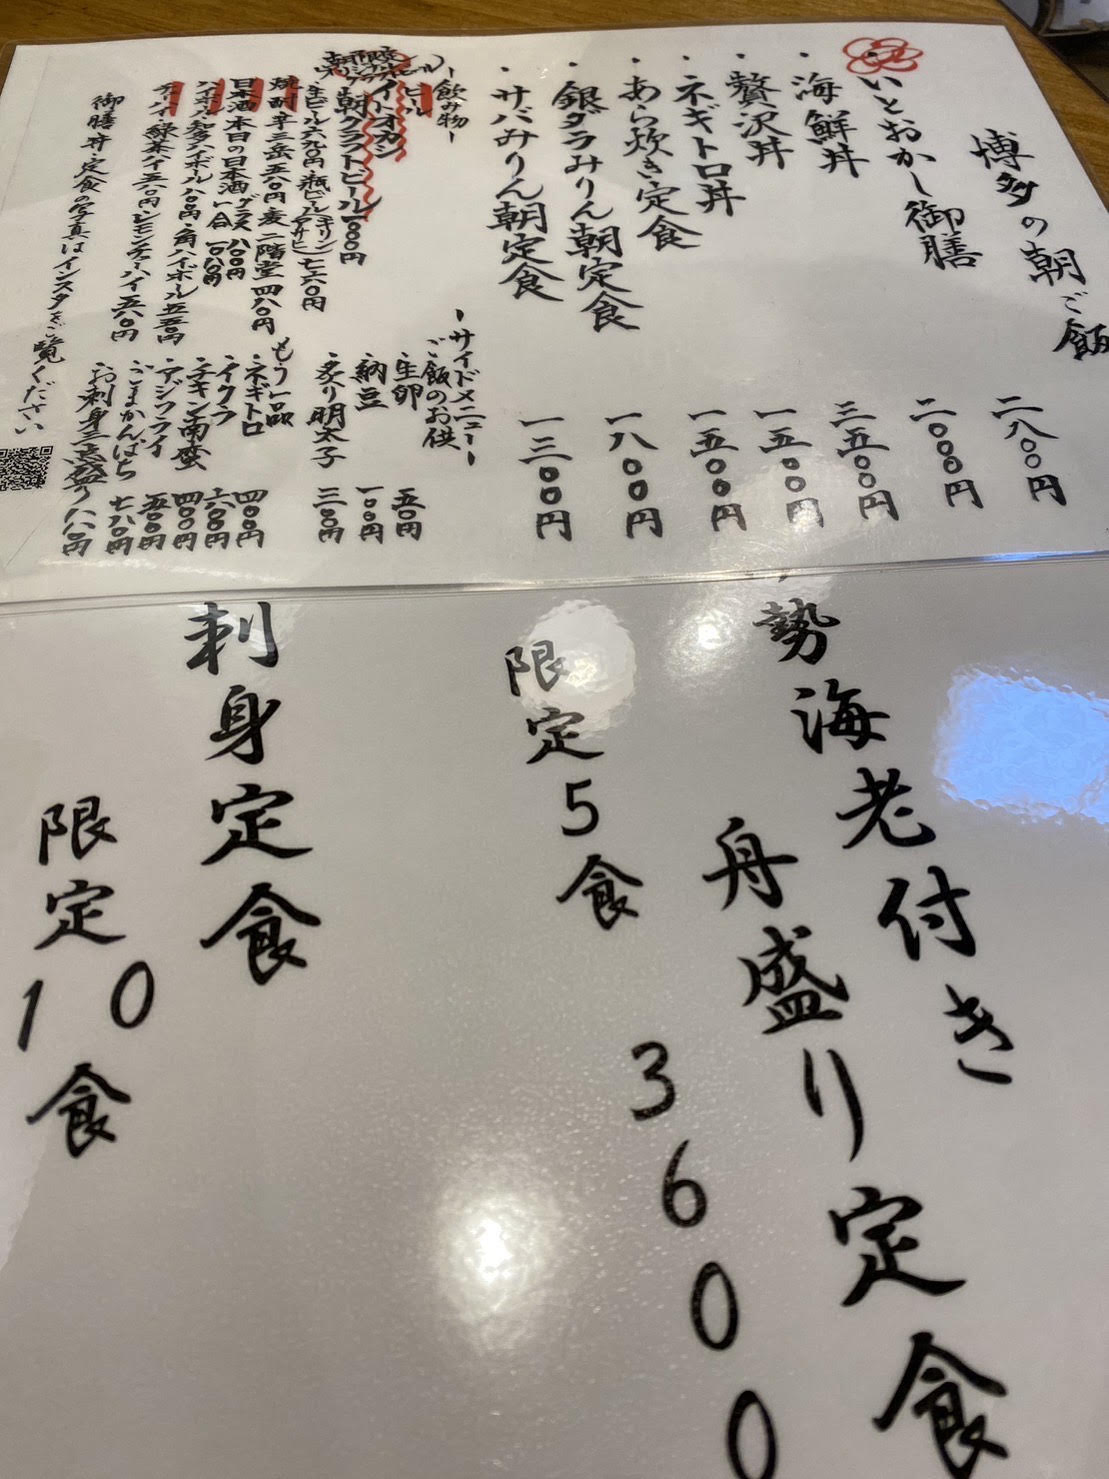 博多の朝ご飯 二八〇〇円
いとおかし御膳 二〇〇〇円
・海鮮丼 三五〇〇円
・贅沢丼 一五〇〇円
・ネギトロ丼 一五〇〇円
・あら炊き定食 一八〇〇円
・銀ダラみりん朝定食
・サバみりん朝定食 一三〇〇円
ー飲み物ー
ビール
イトオカシ
朝クラフトビール 一〇〇〇円
生ビール六九〇円・瓶ビール(キリン アサヒ)七六〇円
焼酎 辛三岳五八〇円 麦 二階堂 四八〇円
日本酒 本日の日本酒 グラス 八〇〇円 一合
ハイボール 八〇〇円・角ハイボール 五五〇円
緑茶ハイ五八〇円 レモンチューハイ 五八〇円
御膳・丼・定食の写真はインスタをご覧ください
ーサイドメニューー
ご飯のお供
・生卵 五〇円
・納豆 一〇〇円
・炙り明太子 三〇〇円
もう一品
・ネギトロ 四〇〇円
・イクラ 六〇〇円
・チキン南蛮 四〇〇円
・アジフライ 五〇〇円
・ごまかんぱち 七八〇円
・お刺身三点盛り 八八〇円
勢海老付き
舟盛り定食
3600
限定5食
刺身定食
限定10食